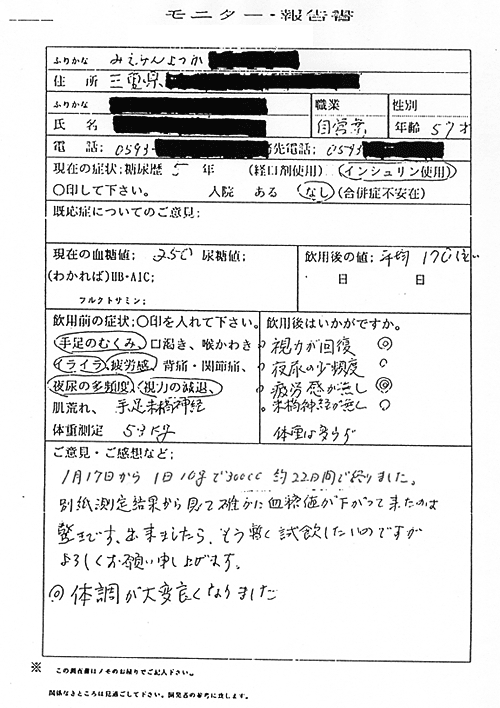 モニター・報告書
ふりかな みえけんよっか
住 所 三重県
ふりかな
氏 名 職業 自営業 性別 年齢 57才
電 話: 0593- 先電話: 0593
現在の症状:糖尿歴 5 年 (経口剤使用) (インシュリン使用)
○印して下さい。 入院 ある (なし) (合併症不安在)
既応症についてのご意見:
現在の血糖値; 250 尿糖値; 飲用後の値; 平均 170
(わかれば)HB・A1C; 日 日
フルクトサミン;
飲用前の症状:○印を入れて下さい。 飲用後はいかがですか。
手足のむくみ、口渇き、喉かわき 視力が回復 ◎
イライラ、疲労感、背痛・関節痛、 夜尿の少頻度 ○
夜尿の多頻度、視力の減退、 疲労感が無し ◎
肌荒れ、 手足末梢神経 末梢神経が無し ○
体重測定 53kg 体重は変らず
ご意見・ご感想など;
1月17日から 1日 10gで300cc 約22日間で終りました。
別紙測定結果から見て確かに血糖値が下がって来たのは
驚きです、出来ましたら、もう暫く試飲したいのですが
よろしくお願い申し上げます。
◎ 体調が大変良くなりました
※ この調査書はノそのお帰りでご記入下さい。
関係なきところは見過ごして下さい。開発者の参考に致します。